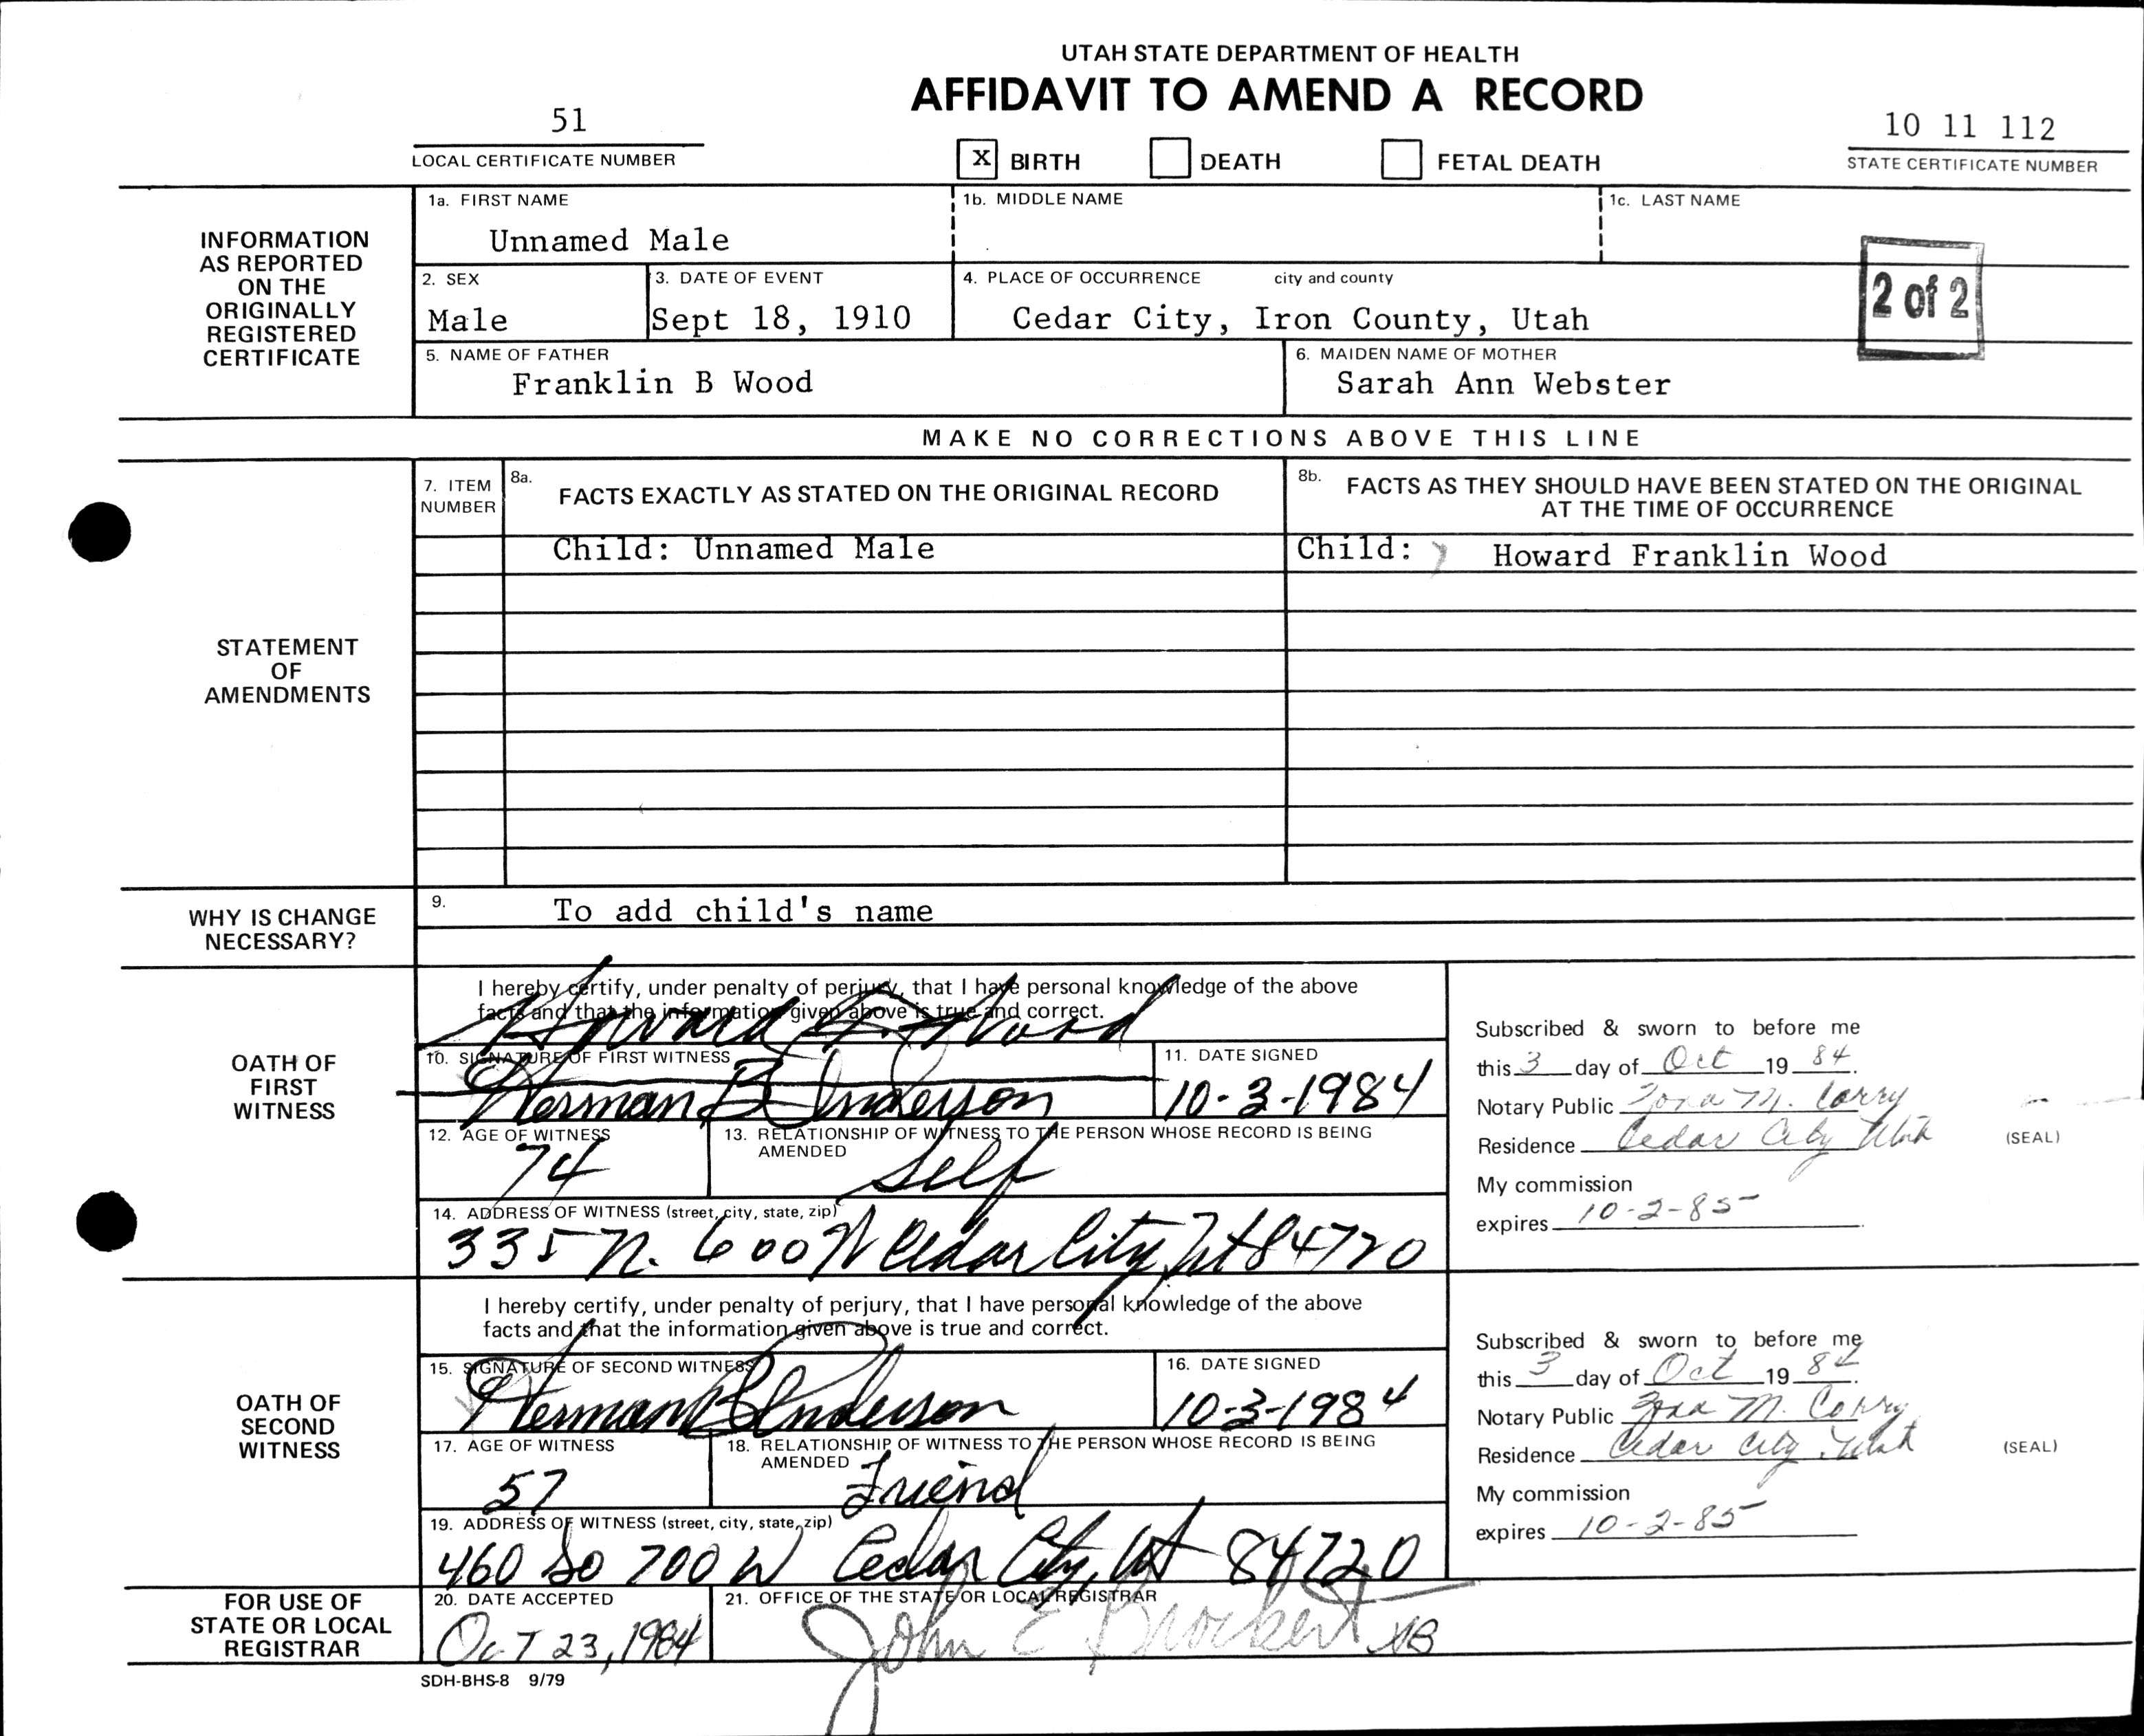 UTAH STATE DEPARTMENT OF HEALTH
AFFIDAVIT TO AMEND A RECORD
51
LOCAL CERTIFICATE NUMBER
X BIRTH DEATH FETAL DEATH
10 11 112
STATE CERTIFICATE NUMBER
INFORMATION AS REPORTED ON THE ORIGINALLY REGISTERED CERTIFICATE
1a. FIRST NAME 1b. MIDDLE NAME 1c. LAST NAME
Unnamed Male
2 of 2
2. SEX 3. DATE OF EVENT 4. PLACE OF OCCURRENCE city and county
Male Sept 18, 1910 Cedar City, Iron County, Utah
5. NAME OF FATHER 6. MAIDEN NAME OF MOTHER
Franklin B Wood Sarah Ann Webster
MAKE NO CORRECTIONS ABOVE THIS LINE
STATEMENT OF AMENDMENTS
7. ITEM NUMBER
8a. FACTS EXACTLY AS STATED ON THE ORIGINAL RECORD
8b. FACTS AS THEY SHOULD HAVE BEEN STATED ON THE ORIGINAL
AT THE TIME OF OCCURRENCE
Child: Unnamed Male Child: Howard Franklin Wood
WHY IS CHANGE NECESSARY?
9. To add child's name
OATH OF FIRST WITNESS
I hereby certify, under penalty of perjury, that I have personal knowledge of the above
facts and that the information given above is true and correct.
Howard F. Wood
10. SIGNATURE OF FIRST WITNESS 11. DATE SIGNED
Herman B Anderson 10-3-1984
12. AGE OF WITNESS 13. RELATIONSHIP OF WITNESS TO THE PERSON WHOSE RECORD IS BEING
AMENDED
74 Self
14. ADDRESS OF WITNESS (street, city, state, zip)
335 N. 600 W Cedar City, Ut 84720
Subscribed & sworn to before me
this 3 day of Oct 19 84.
Notary Public Zona M. Corry
Residence Cedar City Utah (SEAL)
My commission
expires 10-2-85
OATH OF SECOND WITNESS
I hereby certify, under penalty of perjury, that I have personal knowledge of the above
facts and that the information given above is true and correct.
15. SIGNATURE OF SECOND WITNESS 16. DATE SIGNED
Herman B Anderson 10-3-1984
17. AGE OF WITNESS 18. RELATIONSHIP OF WITNESS TO THE PERSON WHOSE RECORD IS BEING
AMENDED
57 Friend
19. ADDRESS OF WITNESS (street, city, state, zip)
460 So 700 W Cedar City, Ut 84720
Subscribed & sworn to before me
this 3 day of Oct 19 84.
Notary Public Zona M. Corry
Residence Cedar City, Utah (SEAL)
My commission
expires 10-2-85
FOR USE OF STATE OR LOCAL REGISTRAR
20. DATE ACCEPTED 21. OFFICE OF THE STATE OR LOCAL REGISTRAR
Oct 23, 1984 John E Brockert
SDH-BHS-8 9/79